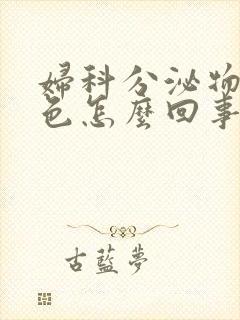 婦科分泌物
色怎麼回事
古藍夢